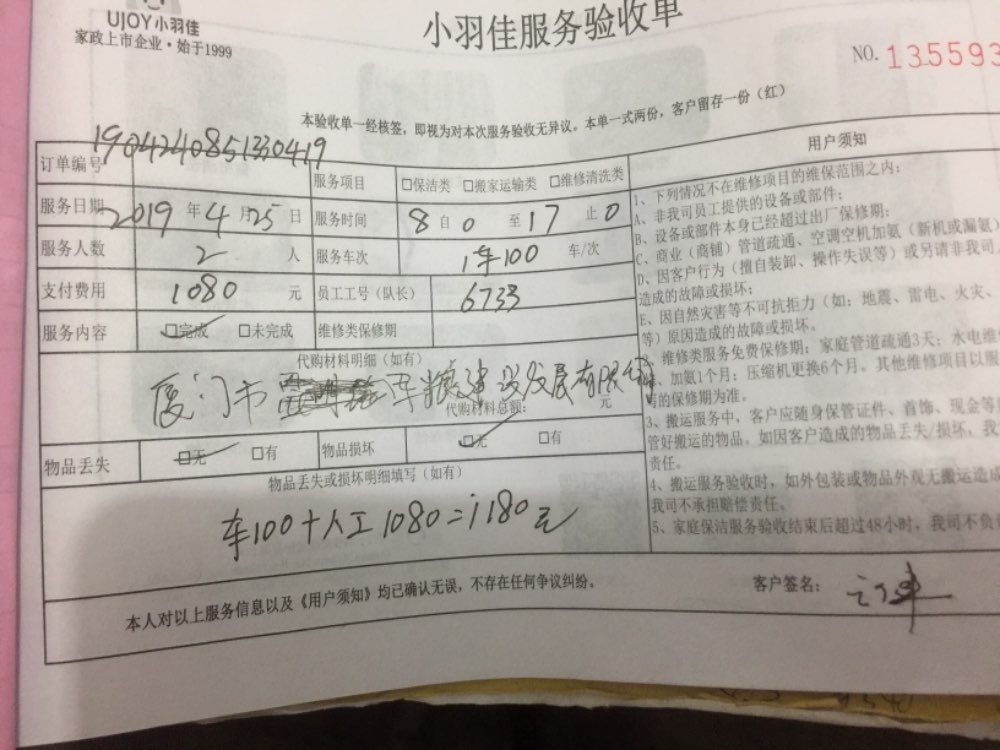 UJOY小羽佳
家政上市企业·始于1999
小羽佳服务验收单
NO. 135593
本验收单一经核签，即视为对本次服务验收无异议。本单一式两份，客户留存一份（红）
订单编号 1904240851330419
服务项目 □保洁类 □搬家运输类 □维修清洗类
服务日期 2019 年 4 月 25 日 服务时间 8 自 0 至 17 止 0
服务人数 2 人 服务车次 1车100 车/次
支付费用 1080 元 员工工号（队长） 6733
服务内容 □完成 □未完成 维修类保修期
代购材料明细（如有）
厦门市 建设发展有限
代购材料总额： 元
物品丢失 □无 □有 物品损坏 □无 □有
物品丢失或损坏明细填写（如有）
车100+人工1080=1180元
本人对以上服务信息以及《用户须知》均已确认无误，不存在任何争议纠纷。
客户签名：
用户须知
1、下列情况不在维修项目的维保范围之内：
A、非我司员工提供的设备或部件；
B、设备或部件本身已经超过出厂保修期；
C、商业（商铺）管道疏通、空调空机加氨（新机或漏氨）
D、因客户行为（擅自装卸、操作失误等）或另请非我司
造成的故障或损坏；
E、因自然灾害等不可抗拒力（如：地震、雷电、火灾、
等）原因造成的故障或损坏。
2、维修类服务免费保修期：家庭管道疏通3天；水电维
、加氨1个月；压缩机更换6个月。其他维修项目以服
的保修期为准。
3、搬运服务中，客户应随身保管证件、首饰、现金等
管好搬运的物品。如因客户造成的物品丢失/损坏，我
责任。
4、搬运服务验收时，如外包装或物品外观无搬运造成
我司不承担赔偿责任。
5、家庭保洁服务验收结束后超过48小时，我司不负